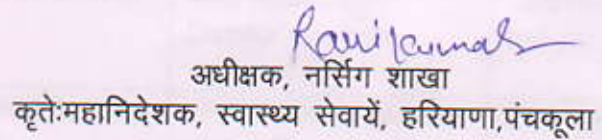 Ravi Kumar
अधीक्षक, नर्सिग शाखा
कृतेःमहानिदेशक, स्वास्थ्य सेवायें, हरियाणा,पंचकूला